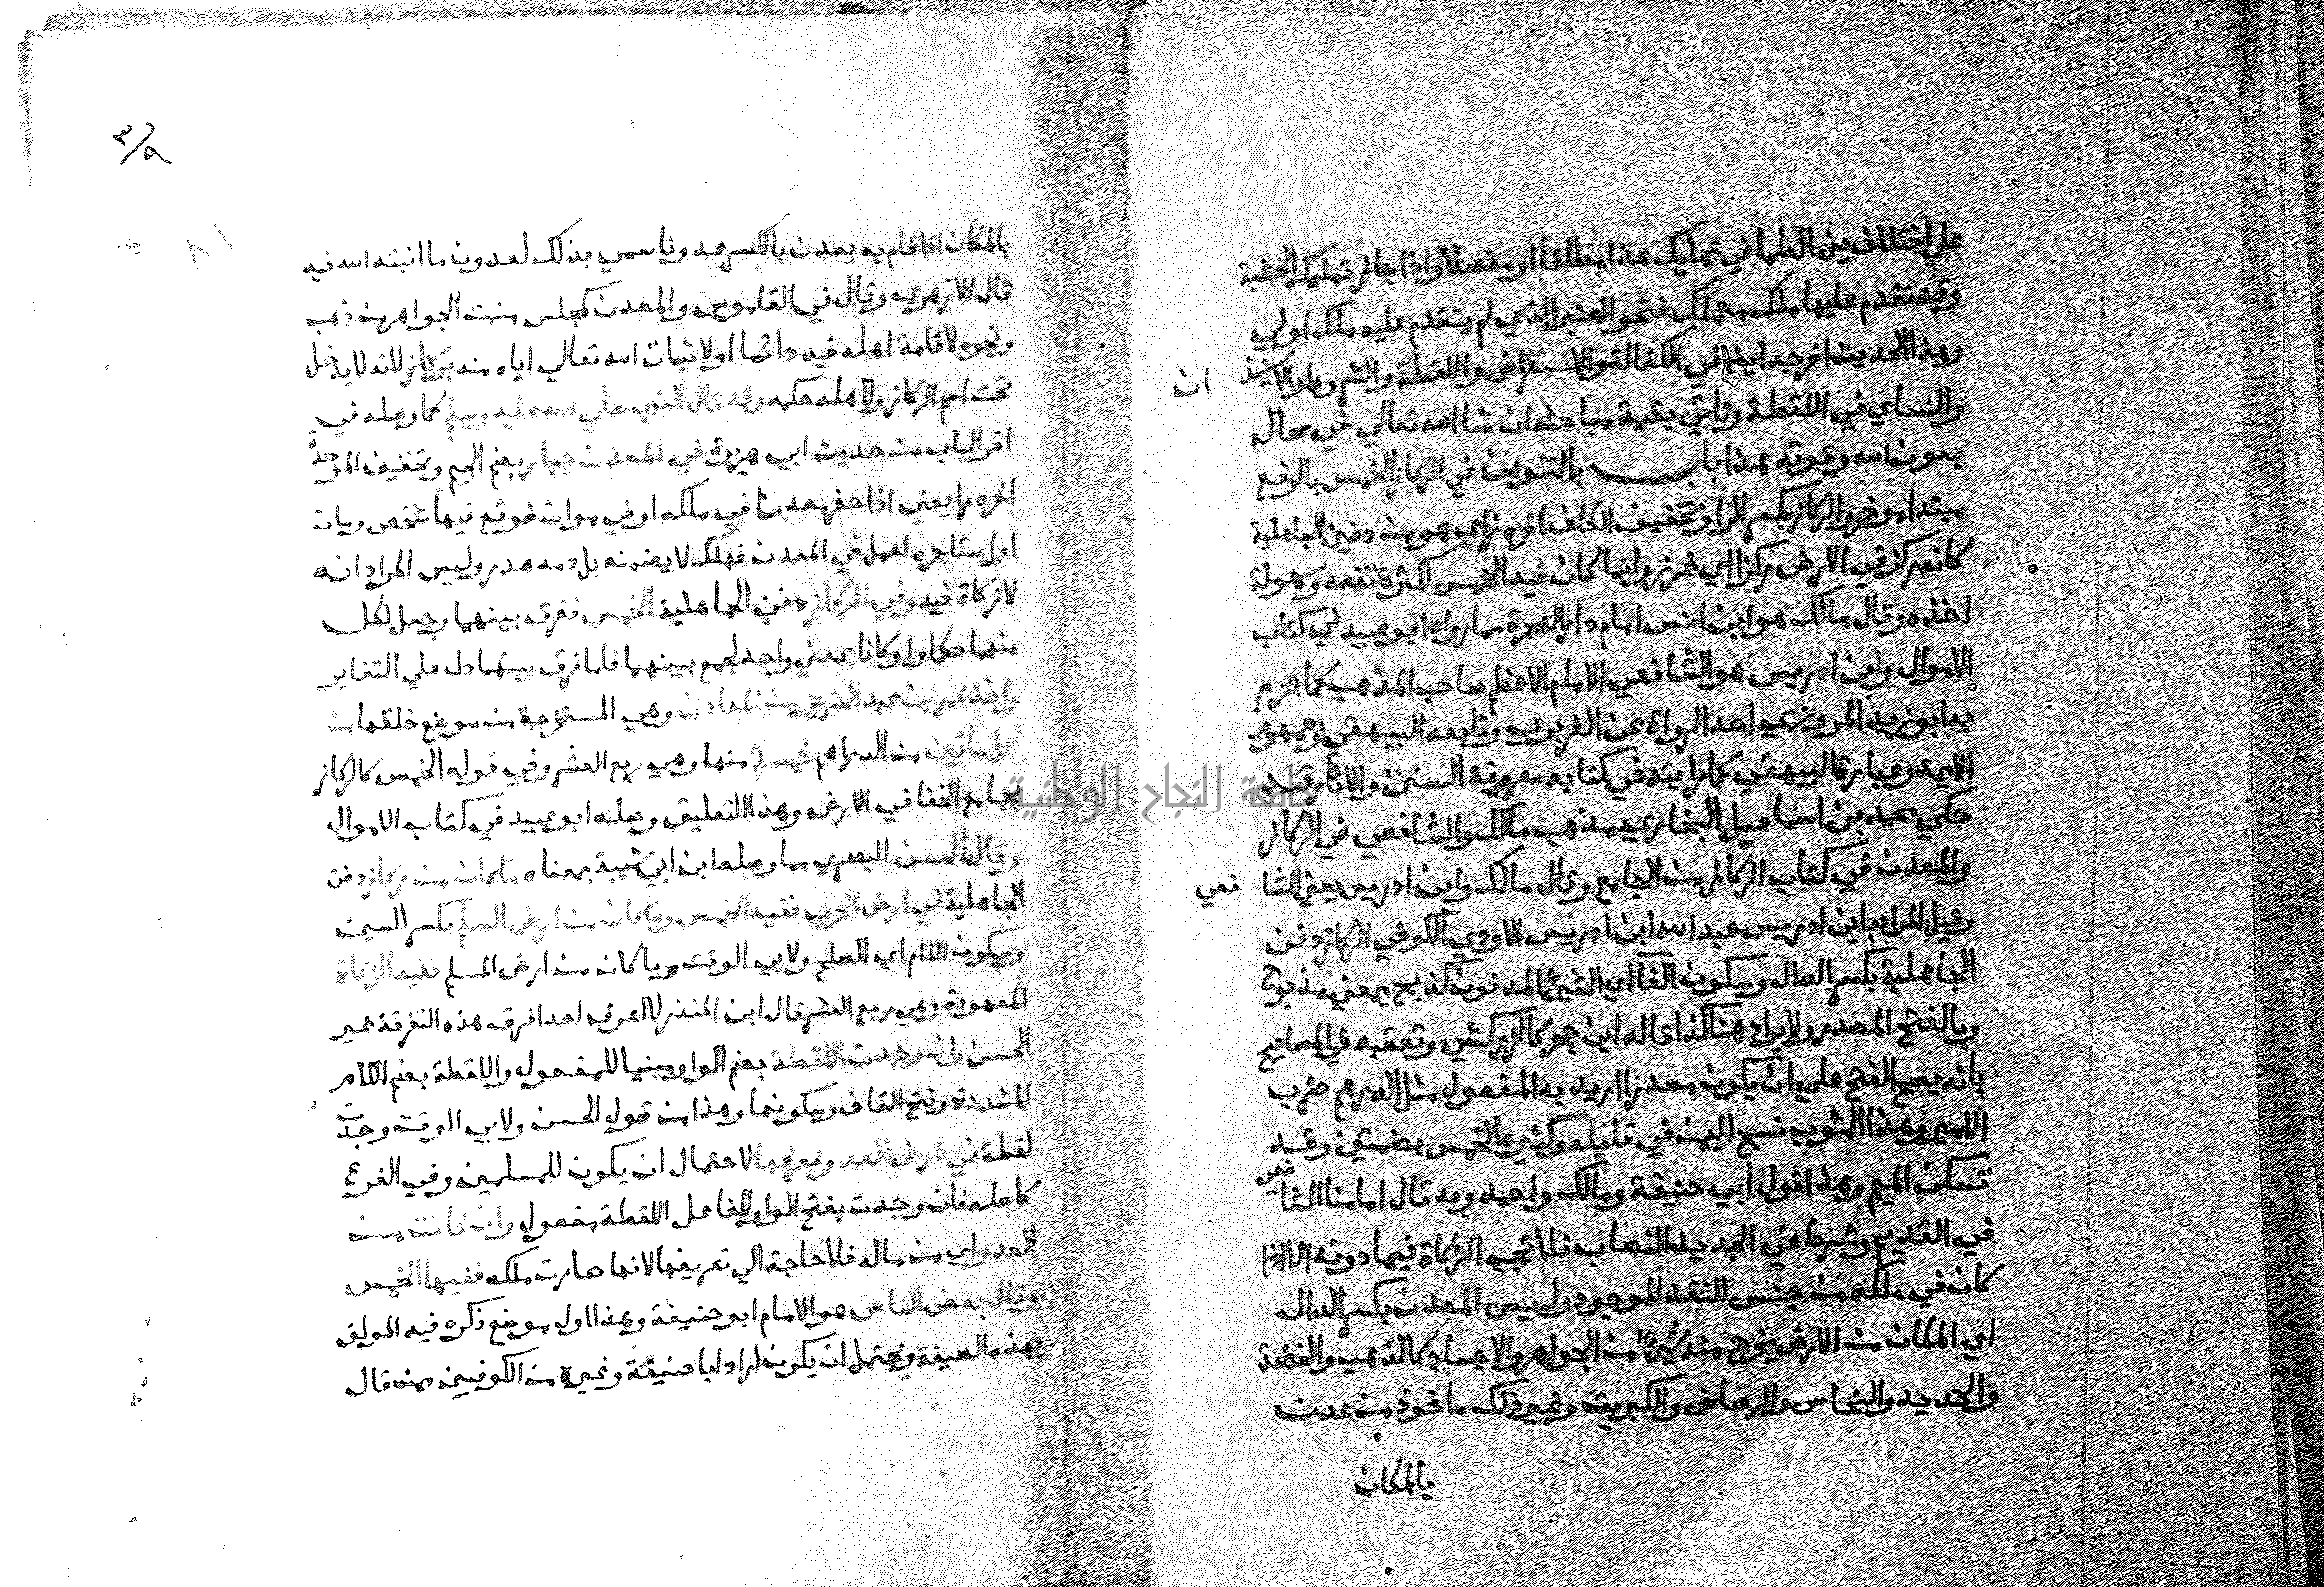 علي اختلاف بين العلما في تمليك هذا مطلقا او مفصلا واذا جاز تمليك الخشبة
وقد تقدم عليها ملك متملك فنحو العنبر الذي لم يتقدم عليه ملك اولي
وهذا الحديث اخرجه ايضا في الكفالة والاستقراض واللقطة والشروط والاستيذ ان
والنساي في اللقطة وتاتي بقية مباحثه ان شا الله تعالي في محاله
بعون الله وقوته هذا باب بالتنوين في الركاز الخمس بالرفع
مبتدا موخر والركاز بكسر الرا وتخفيف الكاف اخره زاي هو من دفين الجاهلية
كانه ركز في الارض ركزا اي غرز وانما كان فيه الخمس لكثرة نفعه وسهولة
اخذه وقال مالك هو ابن انس امام دار الهجرة مما رواه ابو عبيد في كتاب
الاموال وابن ادريس هو الشافعي الامام الاعظم صاحب المذهب كما جزم
به ابو زيد المروزي احد الرواة عن الفربري وتابعه البيهقي وجمهور
الايمة وعبارة البيهقي كما رايته في كتابه معرفة السنن والاثار قد
حكي محمد بن اسماعيل البخاري مذهب مالك والشافعي في الركاز
والمعدن في كتاب الركاز من الجامع وقال مالك وابن ادريس يعني الشا فعي
وقيل المراد بابن ادريس عبد الله ابن ادريس الاودي الكوفي الركاز دفن
الجاهلية بكسر الدال وسكون الفا اي الشيء المدفون كذبح بمعني مذبوح
وبالفتح المصدر ولا يراد هنا كذا قاله ابن حجر كالزركشي وتعقبه في المصابيح
بانه يصح الفتح علي ان يكون مصدرا اريد به المفعول مثل الدرهم ضرب
الامير وهذا الثوب نسج اليمن في قليله وكثيره الخمس بضمتين وقد
تسكن الميم وهذا قول ابي حنيفة ومالك واحمد وبه قال امامنا الشافعي
في القديم وشرط في الجديد النصاب فلا تجب الزكاة فيما دونه الا اذا
كان في ملكه من جنس النقد الموجود وليس المعدن بكسر الدال
اي المكان من الارض يخرج منه شيء من الجواهر والاجساد كالذهب والفضة
والحديد والنحاس والرصاص والكبريت وغير ذلك ماخوذ من عدن
بالمكان
٣/٩
٨١
بالمكان اذا قام به يعدن بالكسر عدونا سمي بذلك لعدون ما انبته الله فيه
قال الازهري وقال في القاموس والمعدن كمجلس منبت الجواهر من ذهب
ونحوه لاقامة اهله فيه دائما او لاثبات الله تعالي اياه منه بركاز لانه لا يدخل
تحت اسم الركاز ولا له حكمه وقد قال النبي صلي الله عليه وسلم كما وصله في
اخر الباب من حديث ابي هريرة في المعدن جبار بضم الجيم وتخفيف الموحدة
اخره را يعني اذا حفر معدنا في ملكه او في موات فوقع فيها شخص ومات
او استاجره لعمل في المعدن فهلك لا يضمنه بل دمه هدر وليس المراد انه
لا زكاة فيه وفي الركاز دفن الجاهلية الخمس ففرق بينهما وجعل لكل
منهما حكما ولو كانا بمعني واحد لجمع بينهما فلما فرق بينهما دل علي التغاير
واخذ عمر بن عبد العزيز من المعادن وهي المستخرجة من موضع خلقها من
كل ماتين من الدراهم خمسة منها وهي ربع العشر وفي قوله الخمس كالركاز
بجامع الخفا في الارض وهذا التعليق وصله ابو عبيد في كتاب الاموال
وقال الحسن البصري مما وصله ابن ابي شيبة بمعناه ما كان من ركاز دفن
الجاهلية في ارض الحرب ففيه الخمس وما كان من ارض السلم بكسر السين
وسكون اللام اي الصلح ولابي الوقت وما كان من ارض المسلم ففيه الزكاة
المعهودة وهي ربع العشر قال ابن المنذر لا اعرف احدا فرق هذه التفرقة غير
الحسن وان وجدت اللقطة بضم الواو مبنيا للمفعول واللقطة بضم اللام
المشددة وفتح القاف وسكونها وهذا من قول الحسن ولابي الوقت وجدت
لقطة في ارض العدو فعرفها لاحتمال ان يكون للمسلمين وفي الفرع
كاصله فان وجدت بفتح الواو للفاعل اللقطة مفعول وان كانت من
العدو اي من ماله فلا حاجة الي تعريفها لانها صارت ملكه ففيها الخمس
وقال بعض الناس هو الامام ابو حنيفة وهذا اول موضع ذكره فيه المولف
بهذه الصيغة ويحتمل ان يكون اراد ابا حنيفة وغيره من الكوفيين ممن قال
جامعة النجاح الوطنية